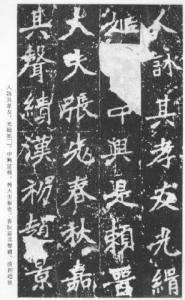 人詠其孝友光緝
姬中興是賴晉
大夫張老春秋嘉
其聲績漢初趙景
人詠其孝友，光緝姬□。中興是賴，晉大夫張老，春秋嘉其聲績，漢初趙景